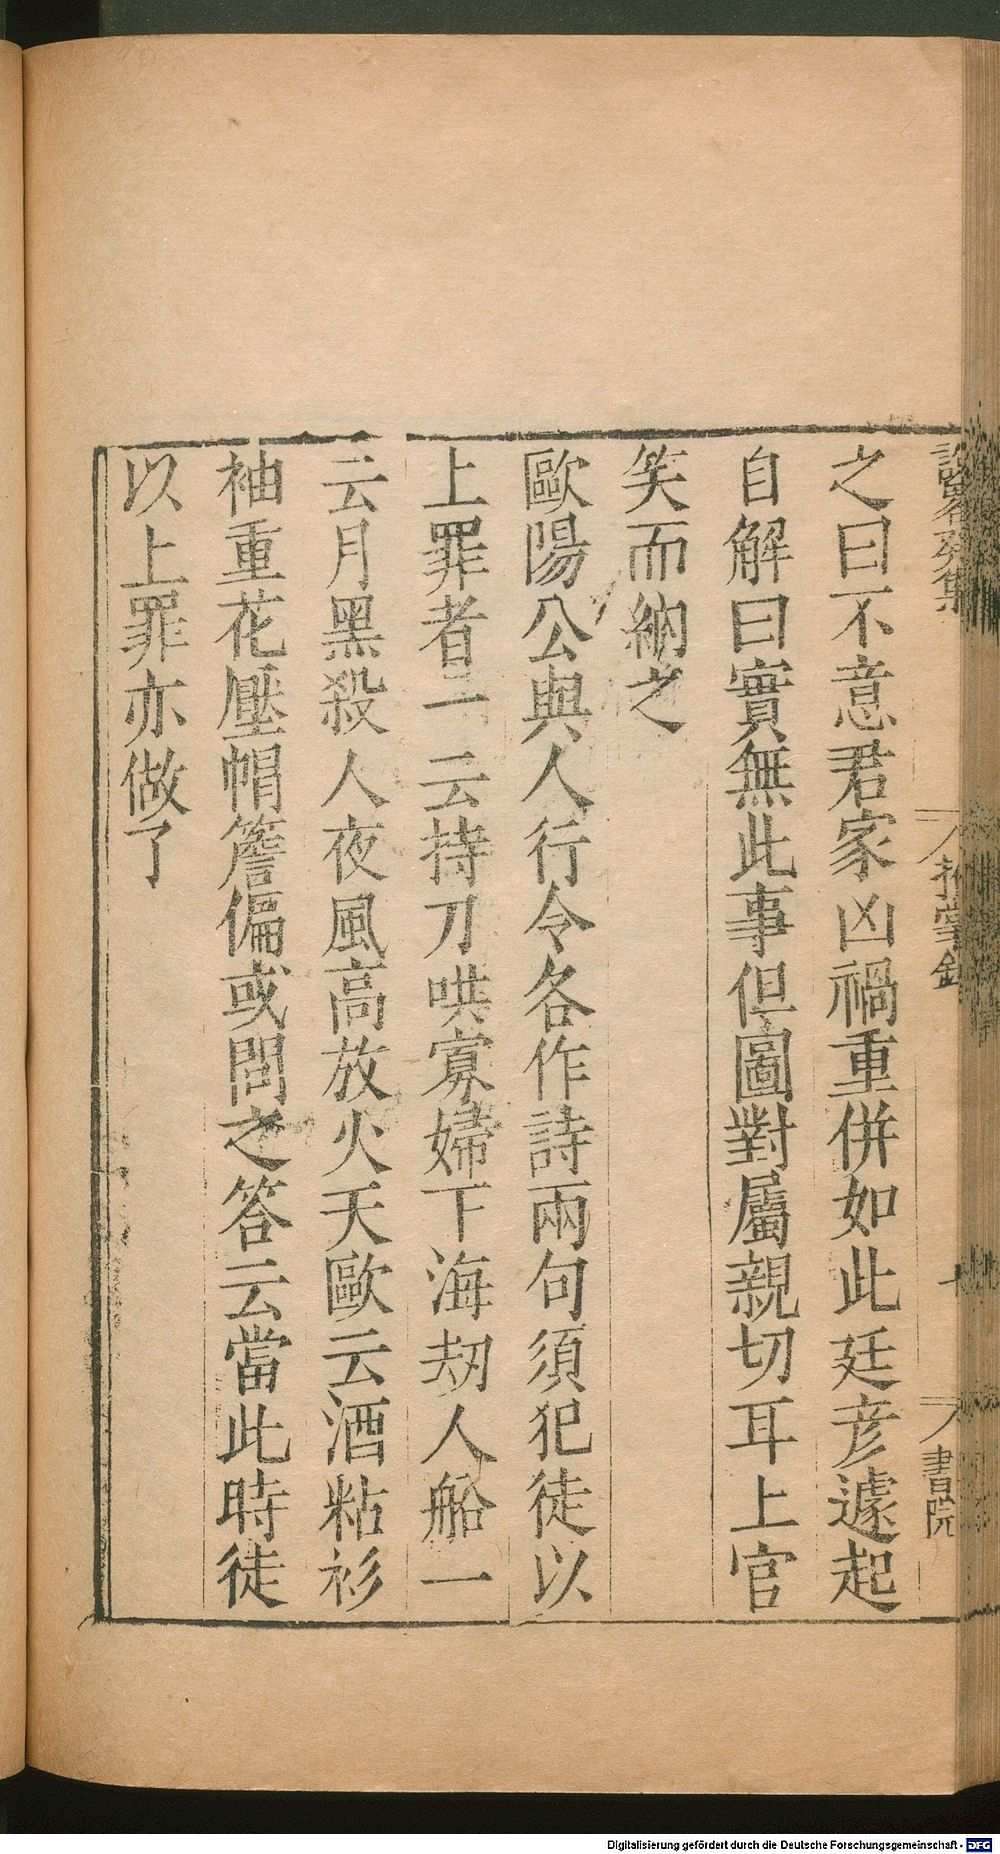 之曰不意君家凶禍重併如此廷彦遽起
自解曰實無此事但圖對屬親切耳上官
笑而納之
歐陽公與人行令各作詩兩句須犯徒以
上罪者一云持刀哄寡婦下海刼人船一
云月黑殺人夜風高放火天歐云酒粘衫
袖重花壓帽簷偏或問之答云當此時徒
以上罪亦做了
書院
Digitalisierung gefördert durch die Deutsche Forschungsgemeinschaft - DFG